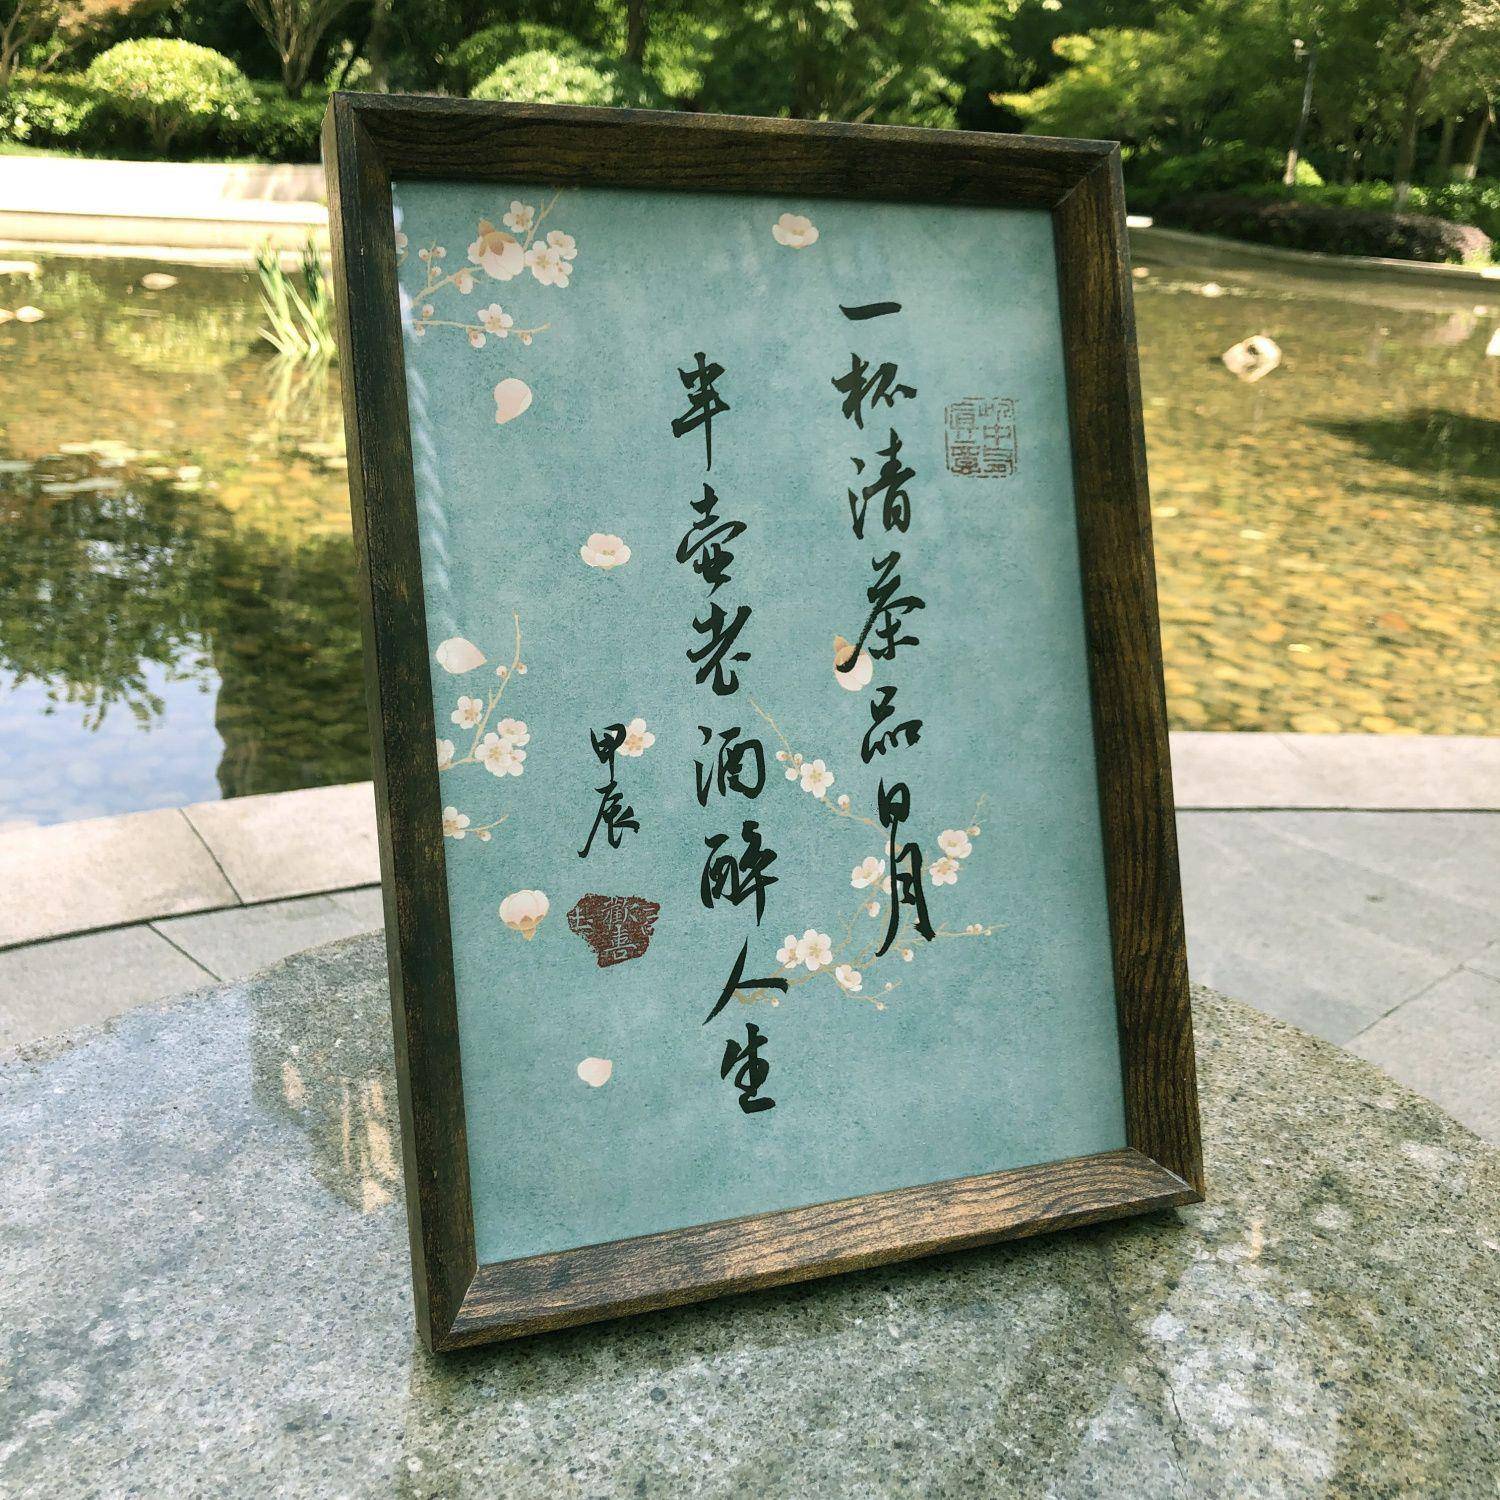 一杯清茶品日月
半壶老酒醉人生
甲辰